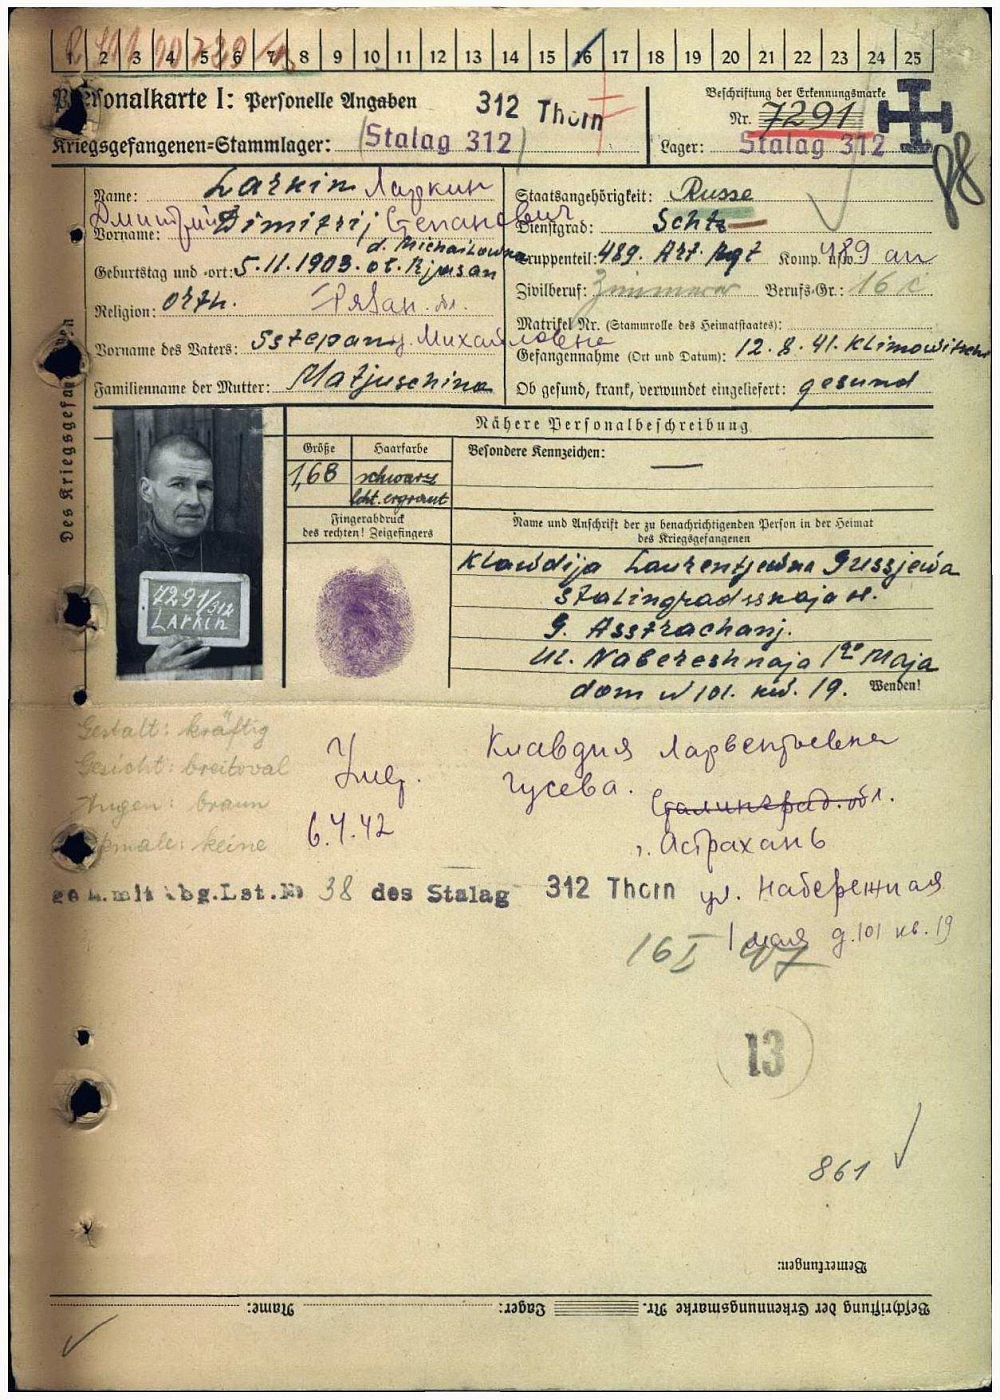 1 2 3 4 5 6 7 8 9 10 11 12 13 14 15 16 17 18 19 20 21 22 23 24 25
Personalkarte I: Personelle Angaben
312 Thorn
Kriegsgefangenen=Stammlager: Stalag 312
Beschriftung der Erkennungsmarke
Nr. 7291
Lager: Stalag 312
88
Des Kriegsgefangenen
Name: Larkin Ларкин
Дмитрий Степанович
Vorname: Dimitrij
d. Michailowna
Geburtstag und -ort: 5.11.1903. ob. Rjasan
Religion: Orth.
Vorname des Vaters: Sstepan Михайловна
Familienname der Mutter: Matjuschina
Staatsangehörigkeit: Russe
Dienstgrad: Schtz
Truppenteil: 489. Art. Rgt Komp. usw.: 489 ап
Zivilberuf: Zimmerer Berufs-Gr.: 16 c
Matrikel Nr. (Stammrolle des Heimatstaates):
Gefangennahme (Ort und Datum): 12.8.41. Klimowitschi
Ob gesund, krank, verwundet eingeliefert: gesund
Nähere Personalbeschreibung
Größe Haarfarbe
1,68 schwarz
lcht. ergraut
Besondere Kennzeichen: —
Fingerabdruck
des rechten! Zeigefingers
Name und Anschrift der zu benachrichtigenden Person in der Heimat
des Kriegsgefangenen
7291/312
Larkin
Klawdija Laurentjewna Gussjewa
Stalingradsskaja ob.
G. Asstrachanj.
Ul. Nabereshnaja 1go Maja
dom N 101. kw. 19.
Wenden!
Gestalt: kräftig
Gesicht: breitoval
Augen: braun
Merkmale: keine
6.4.42
КлавдияЛарвентьевна
Гусева.
Сталинград. обл.
г. Астрахань
ул. Набережная
1 мая д. 101 кв. 19
gem. mit Abg.Lst.№ 38 des Stalag 312 Thorn
16 I 47
13
861
Bemerkungen:
Beschriftung der Erkennungsmarke Nr. Lager: Name: